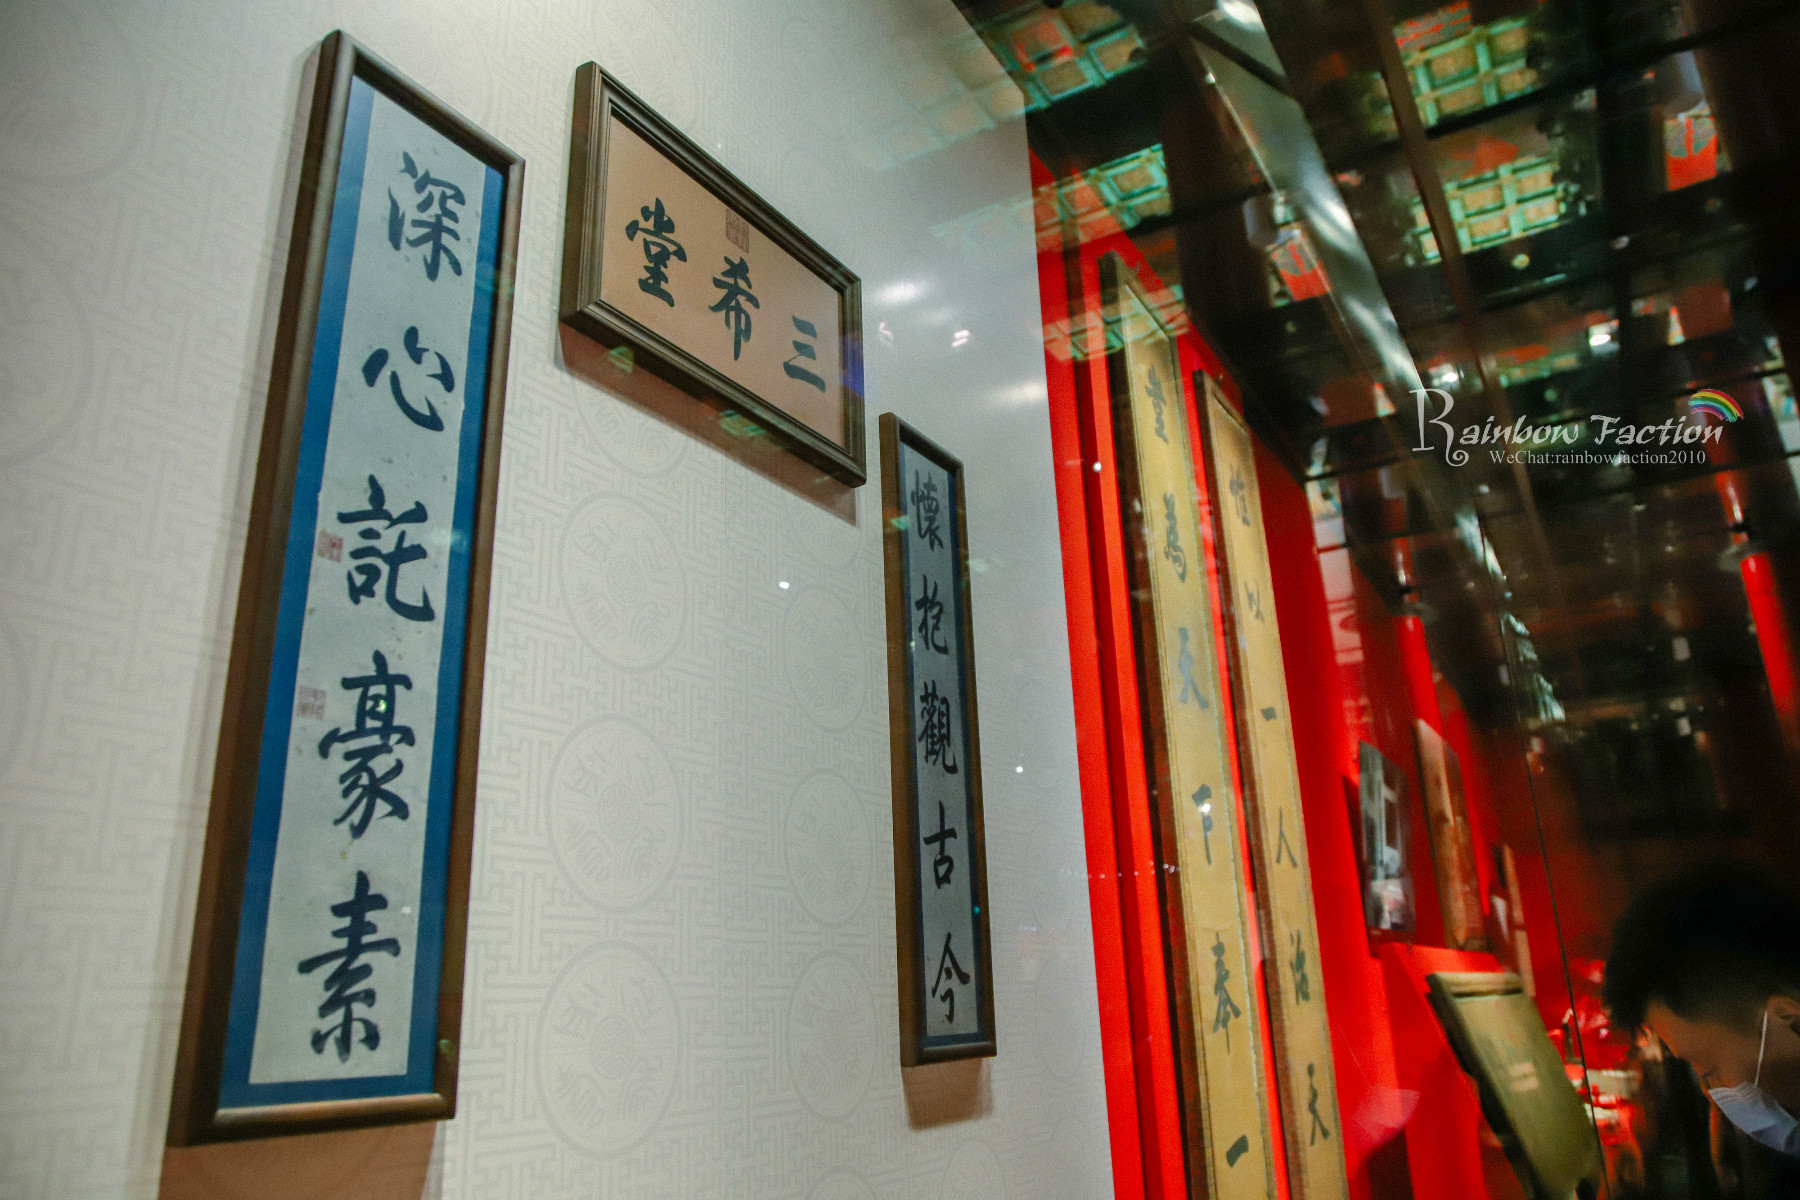 三希堂
懷抱觀古今
深心託豪素
惟以一人治天
豈爲天下奉一
Rainbow Faction
WeChat:rainbowfaction2010